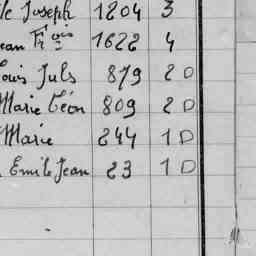 Joseph 1204 3
ean Fçois 1622 4
ouis Juls 879 2 D
Marie Léon 809 2 D
Marie 244 1 D
Emile Jean 23 1 D